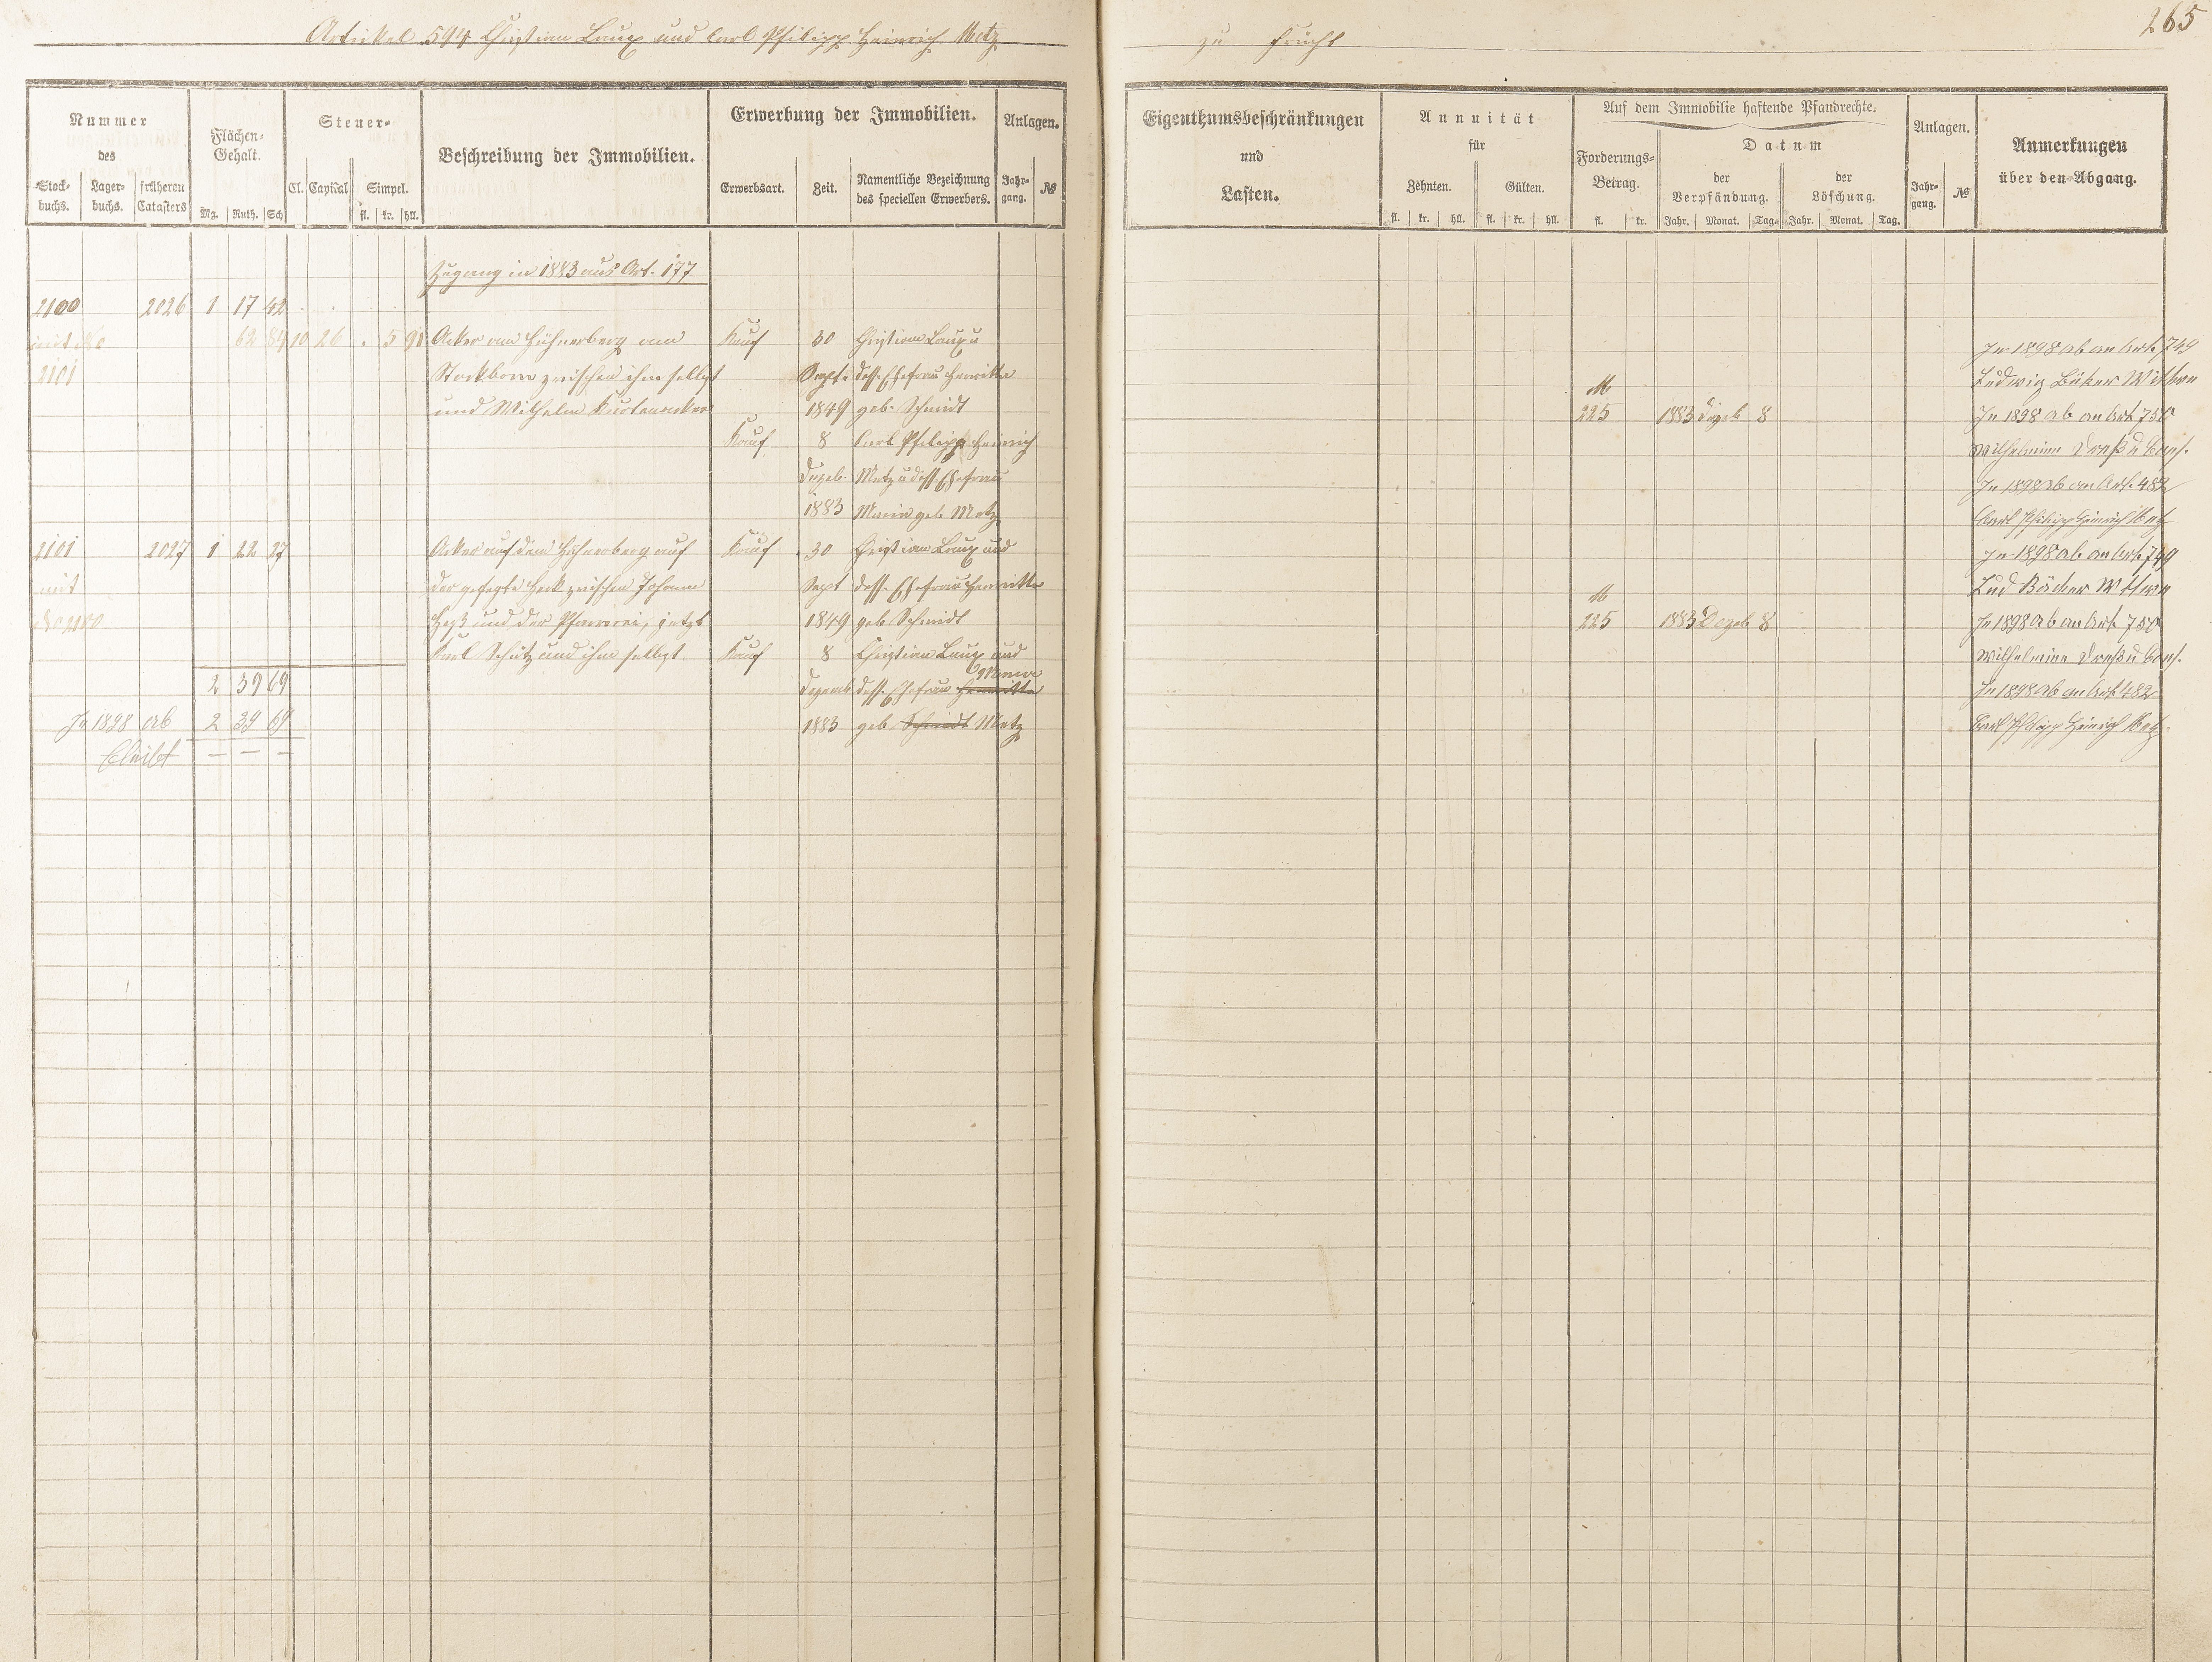 Artikel 594 Christian Laux und Carl Philipp Heinrich Metz
zu Frücht
265
Nummer
des
Stock-
buchs.
Lager-
buchs.
früheren
Catasters
Flächen-
Gehalt.
Mg. Ruth. Sch
Steuer-
Cl. Capital Simpel.
fl. kr. hll.
Beschreibung der Immobilien.
Erwerbung der Immobilien.
Erwerbsart. Zeit.
Namentliche Bezeichnung
des speciellen Erwerbers.
Anlagen.
Jahr-
gang.
№
Eigenthumsbeschränkungen
und
Lasten.
Annuität
für
Zehnten. Gülten.
fl. kr. hll. fl. kr. hll.
Auf dem Immobilie haftende Pfandrechte.
Forderungs-
Betrag.
fl. kr.
Datum
der
Verpfändung.
Jahr. Monat. Tag.
der
Löschung.
Jahr. Monat. Tag.
Anlagen.
Jahr-
gang.
№
Anmerkungen
über den Abgang.
Zugang in 1883 aus Art. 177
2100 2026 1 17 42
mit No 62 84 10 26 . 5 91 Acker am Hühnerberg am Kauf 30 Christian Laux u
2101 Stockborn zwischen ihm selbst Sept. dess. Ehefrau Henriette
und Wilhelm 1849 geb. Schmidt
Kauf 8 Carl Philipp Heinrich
Dezeb. Metz u dess. Ehefrau
1883 Maria geb Metz
2101 2027 1 22 27 Acker auf dem Hühnerberg auf Kauf 30 Christian Laux und
mit der Heck zwischen Johann Sept dess. Ehefrau Henriette
No 2100 Heß und der Pfarrei, jetzt 1849 geb Schmidt
Karl Schütz und ihm selbst Kauf 8 Christian Laux und
Maria
2 39 69 Dezemb dess. Ehefrau Henriette
In 1898 ab 2 39 69 1883 geb Schmidt Metz
bleibt — — —
In 1898 ab an Art. 749
M Ludwig Bäcker Wittwe
225 1883 Dezeb 8 In 1898 ab an Art 750
Wilhelmine u Cons.
In 1898 ab an Art. 482
Carl Philipp Heinrich Metz
In 1898 ab an Art. 749
M Lud Bäcker Wittwe
225 1883 Dezeb 8 In 1898 ab an Art 750
Wilhelmine u Cons.
In 1898 ab an Art 482
Carl Philipp Heinrich Metz